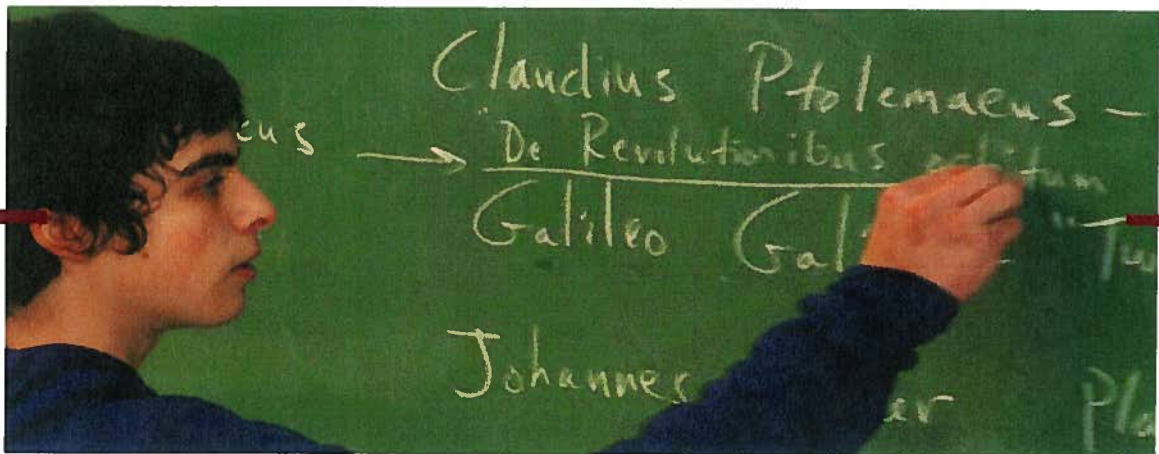 Claudius Ptolemaeus -
eus → "De Revolutionibus
Galileo Gal
Johannes er Pla